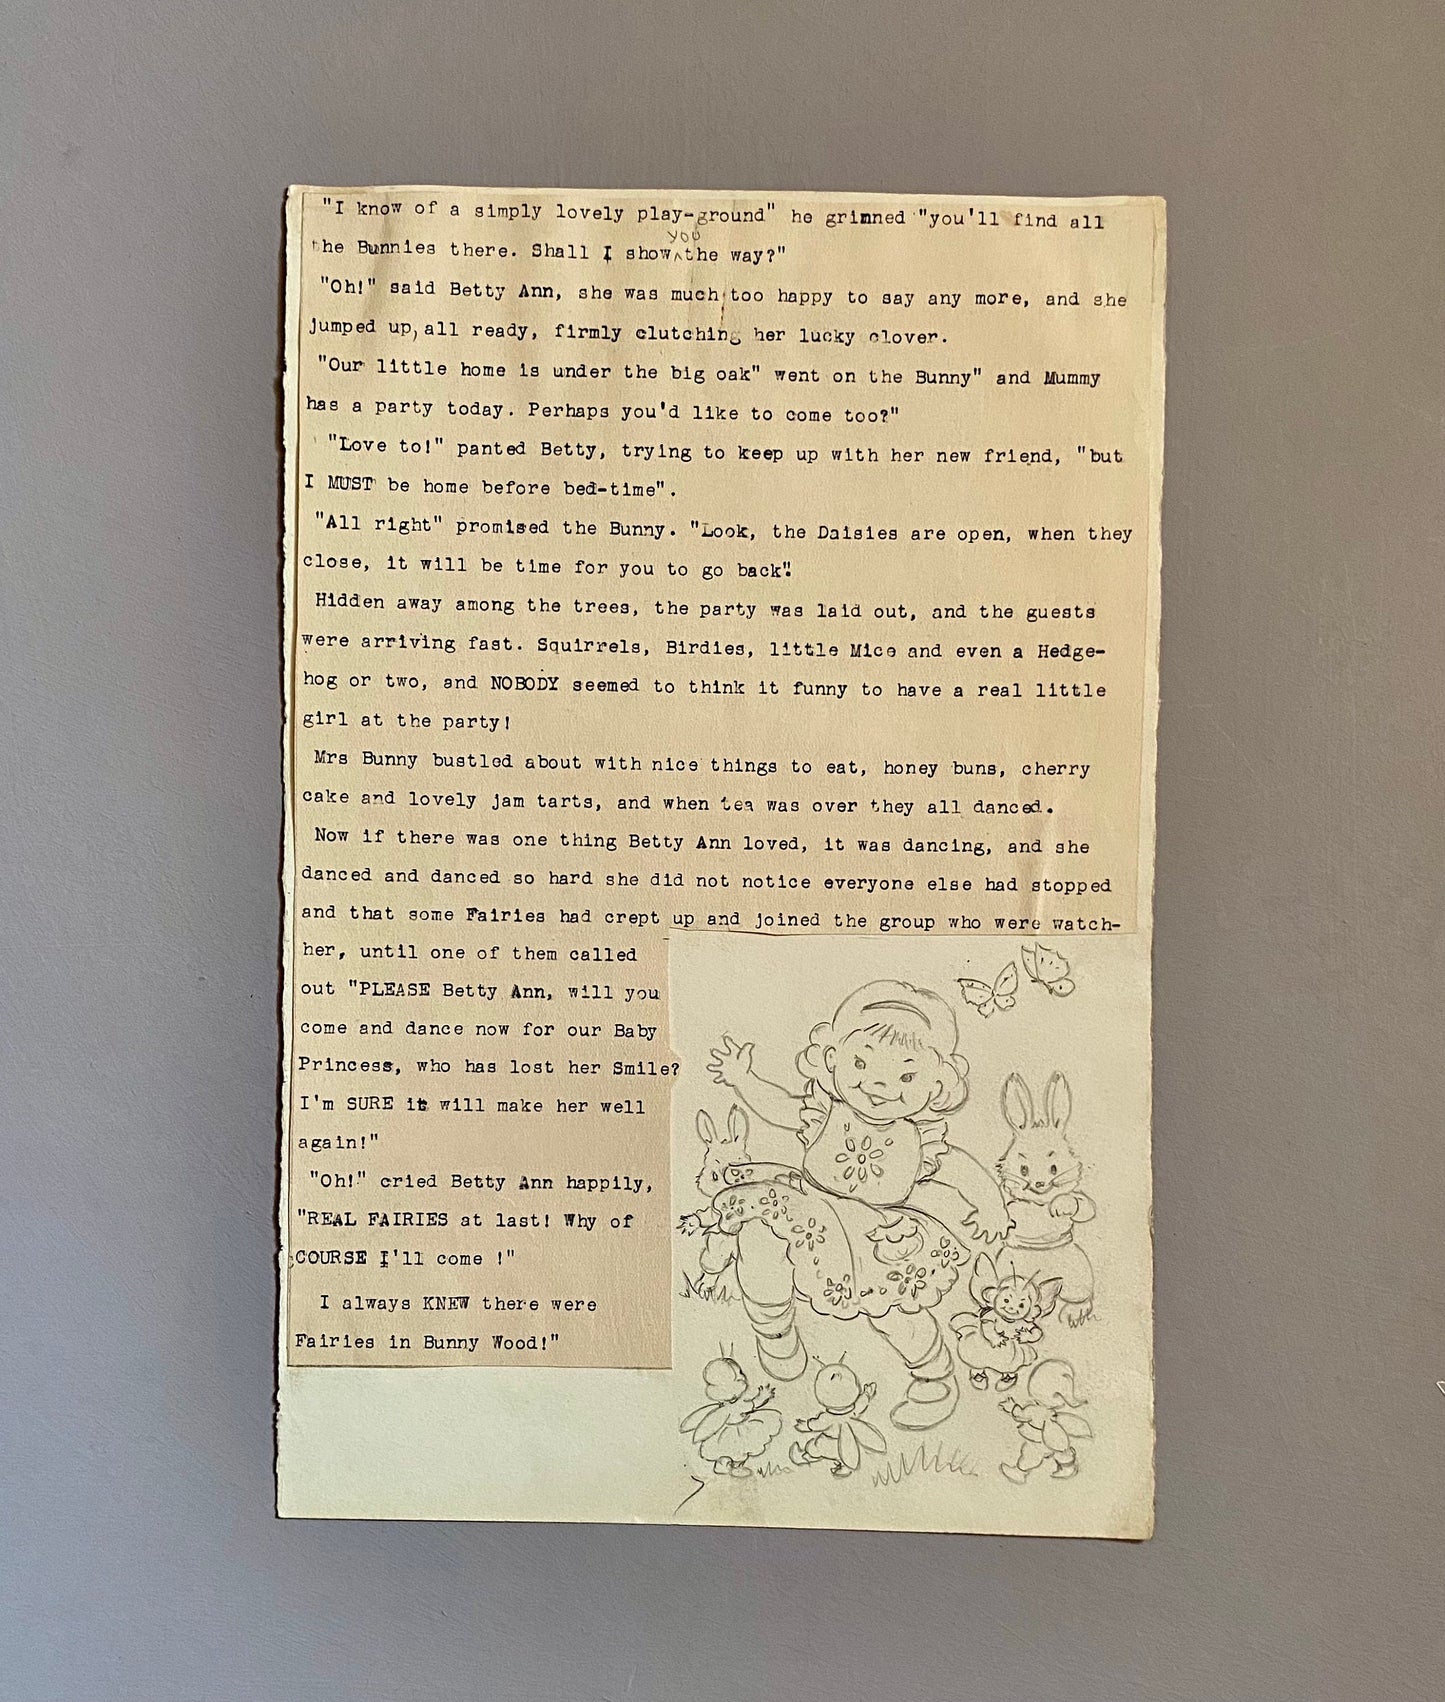 "I know of a simply lovely play-ground" he grinned "you'll find all
you
the Bunnies there. Shall I show^the way?"
"Oh!" said Betty Ann, she was much too happy to say any more, and she
jumped up, all ready, firmly clutching her lucky clover.
"Our little home is under the big oak" went on the Bunny" and Mummy
has a party today. Perhaps you'd like to come too?"
"Love to!" panted Betty, trying to keep up with her new friend, "but
I MUST be home before bed-time".
"All right" promised the Bunny. "Look, the Daisies are open, when they
close, it will be time for you to go back".
Hidden away among the trees, the party was laid out, and the guests
were arriving fast. Squirrels, Birdies, little Mice and even a Hedge-
hog or two, and NOBODY seemed to think it funny to have a real little
girl at the party!
Mrs Bunny bustled about with nice things to eat, honey buns, cherry
cake and lovely jam tarts, and when tea was over they all danced.
Now if there was one thing Betty Ann loved, it was dancing, and she
danced and danced so hard she did not notice everyone else had stopped
and that some Fairies had crept up and joined the group who were watch-
her, until one of them called
out "PLEASE Betty Ann, will you
come and dance now for our Baby
Princess, who has lost her Smile?
I'm SURE it will make her well
again!"
"Oh!" cried Betty Ann happily,
"REAL FAIRIES at last! Why of
COURSE I'll come !"
I always KNEW there were
Fairies in Bunny Wood!"